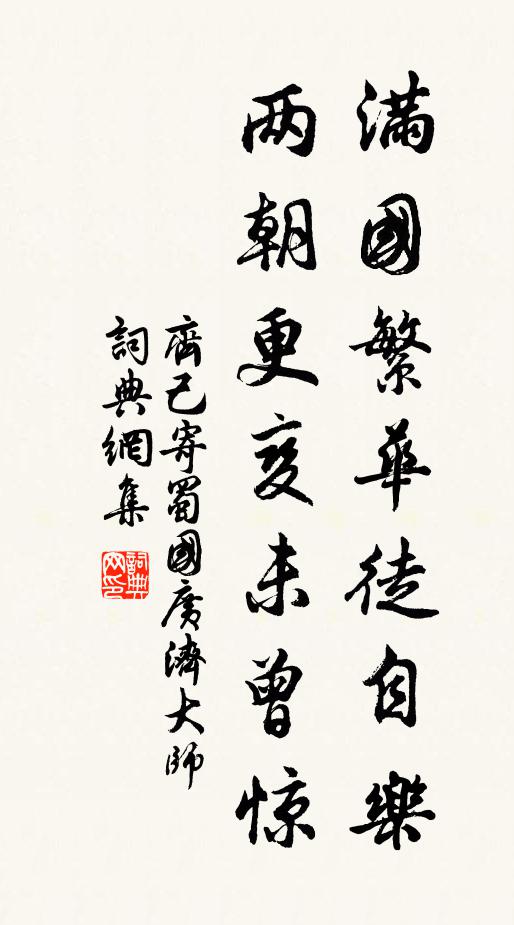 滿國繁華徒自樂
两朝更变未曾惊
齊己寄蜀國廣濟大师
詞典網集
詞典网印